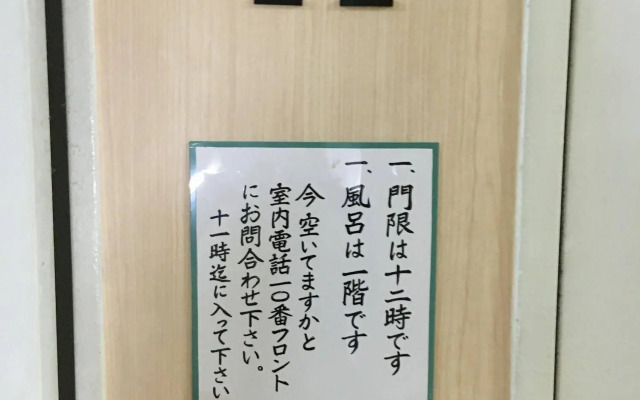 一、門限は十二時です
一、風呂は一階です
今空いてますかと
室内電話一〇番フロント
にお問合わせ下さい。
十一時迄に入って下さい